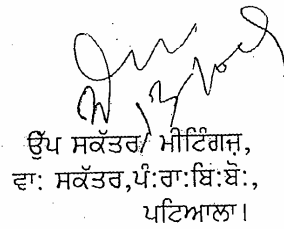 ਉੱਪ ਸਕੱਤਰ/ ਮੀਟਿੰਗਜ਼,
ਵਾ: ਸਕੱਤਰ,ਪੰ:ਰਾ:ਬਿ:ਬੋ:,
ਪਟਿਆਲਾ।